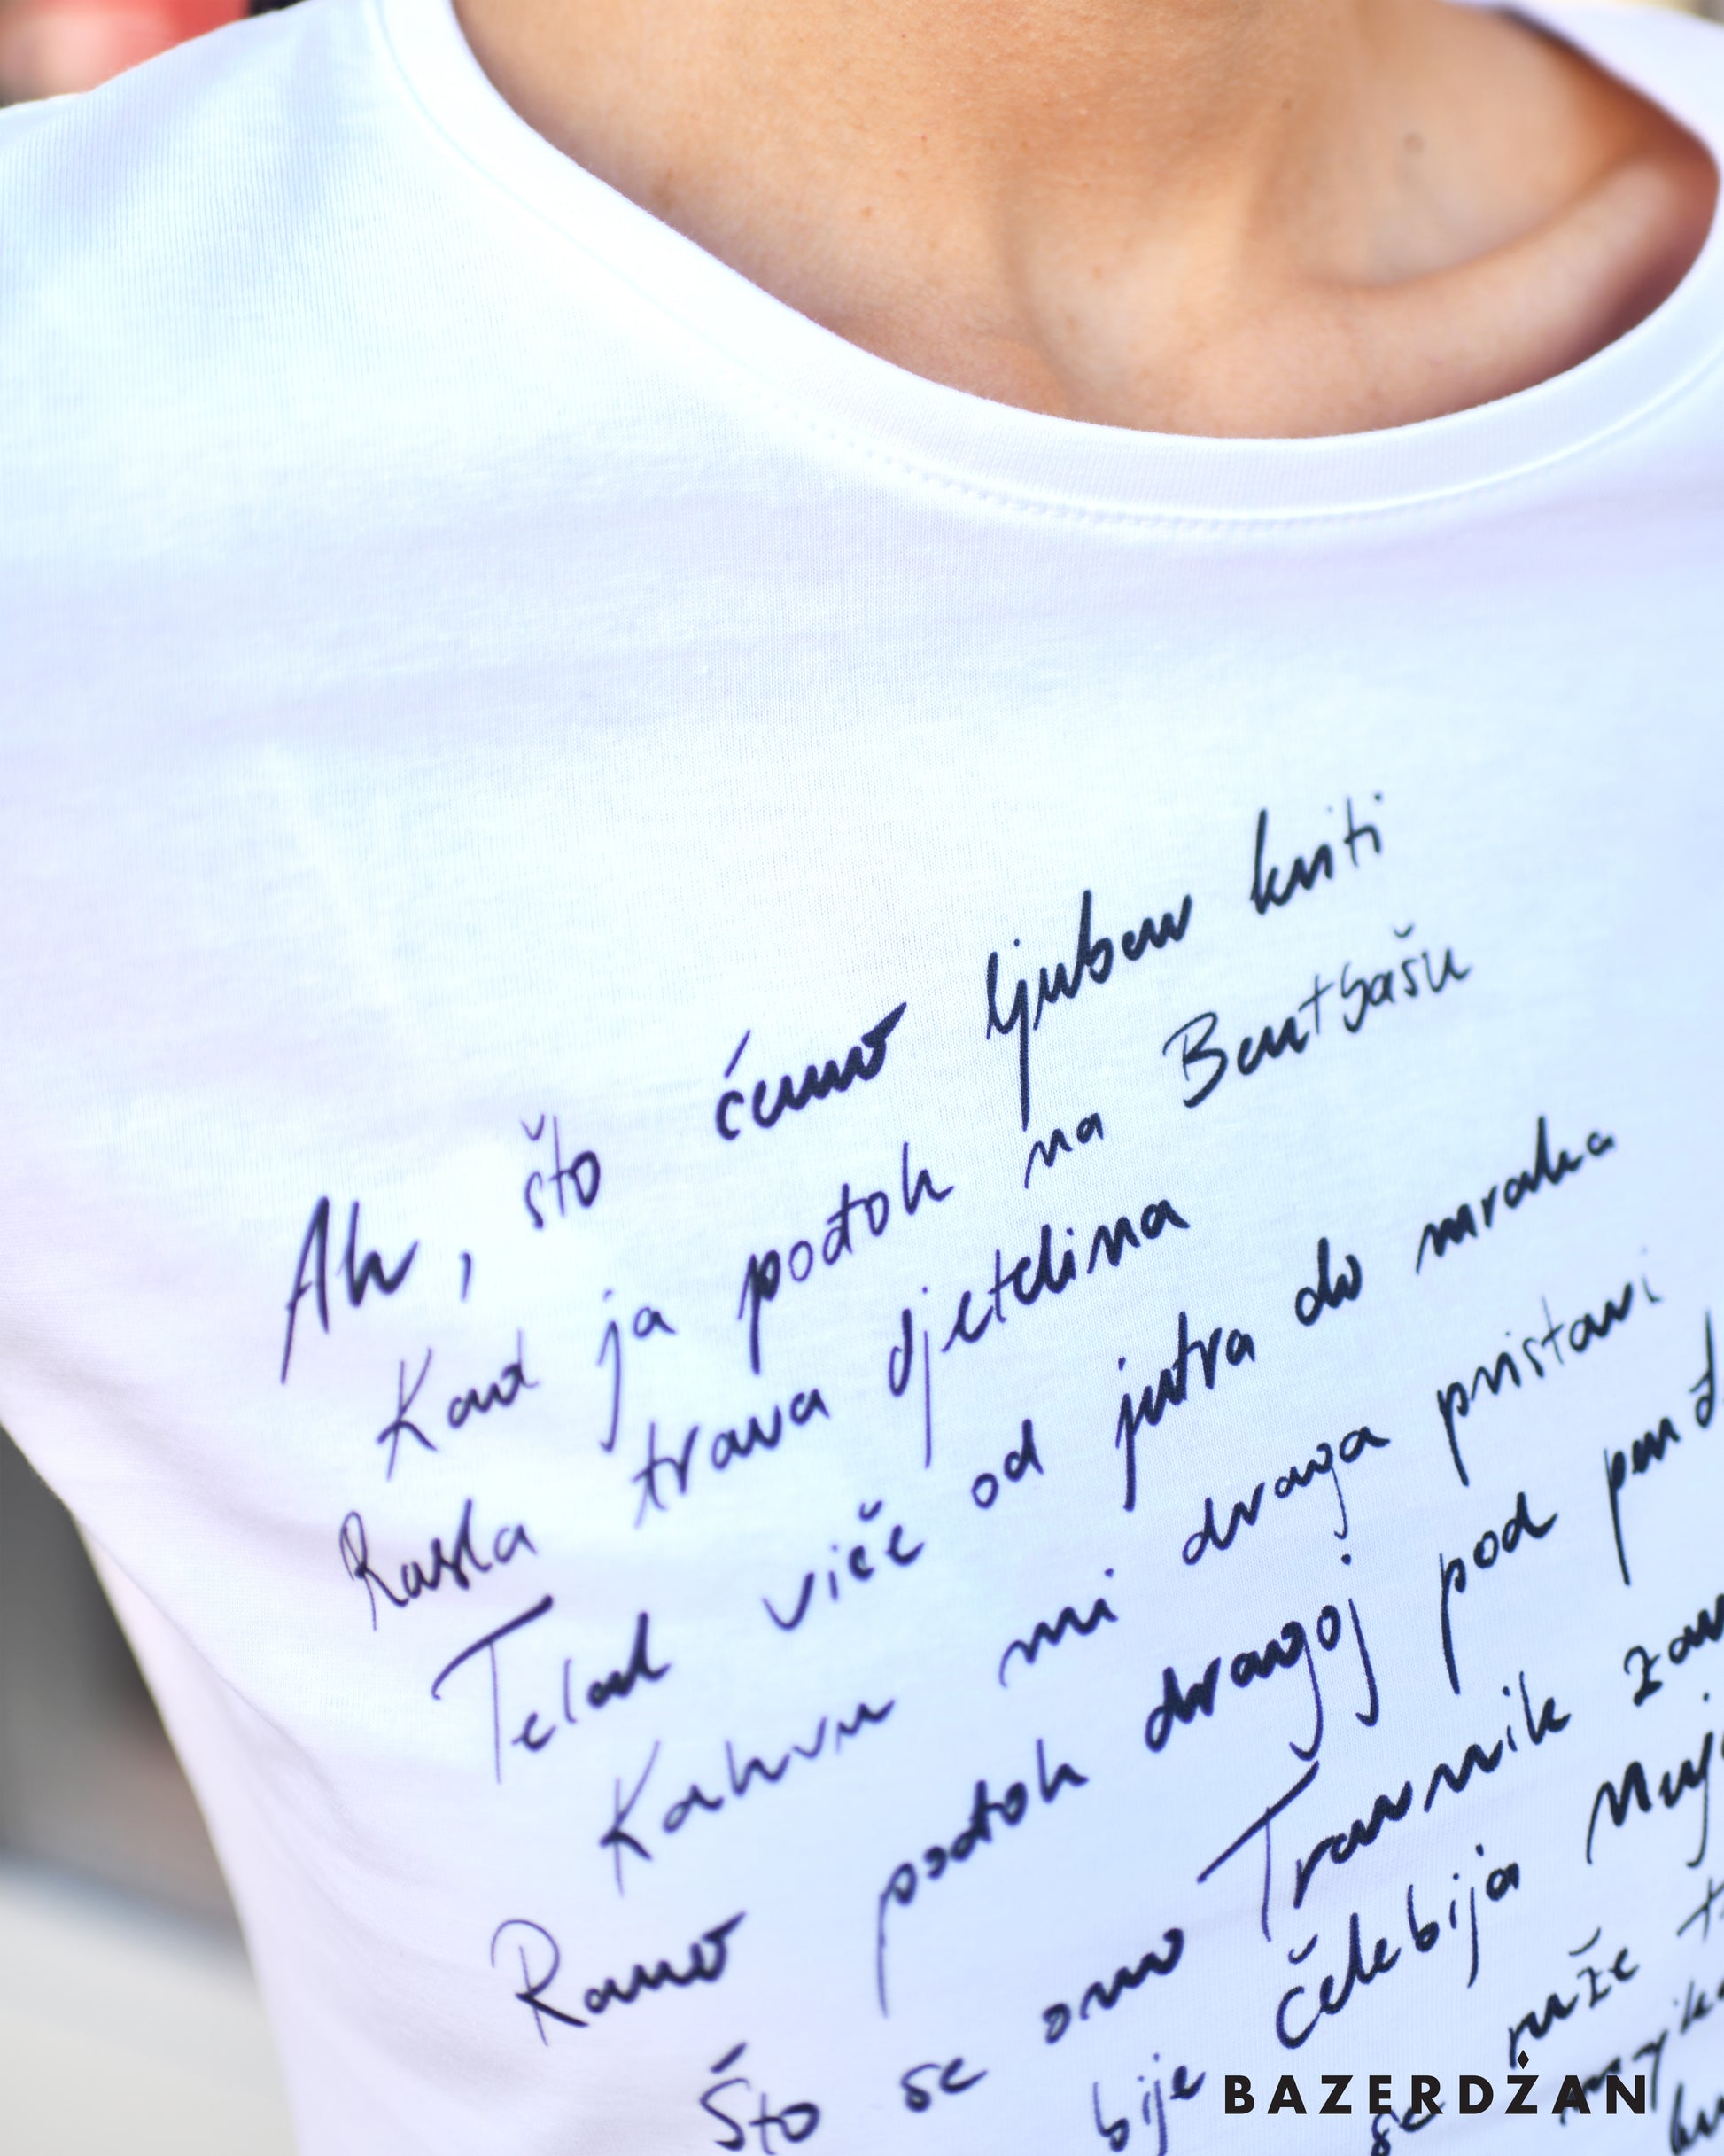 Ah, što ćemo ljubav kriti
Kad ja pođoh na Bentbašu
Rasla trava djetelina
Telal viče od jutra do mraka
Kahvu mi draga pristavi
Rano pođoh dragoj pod
Što se ono Travnik
bije čelebija
se ruže
BAZERDŽAN